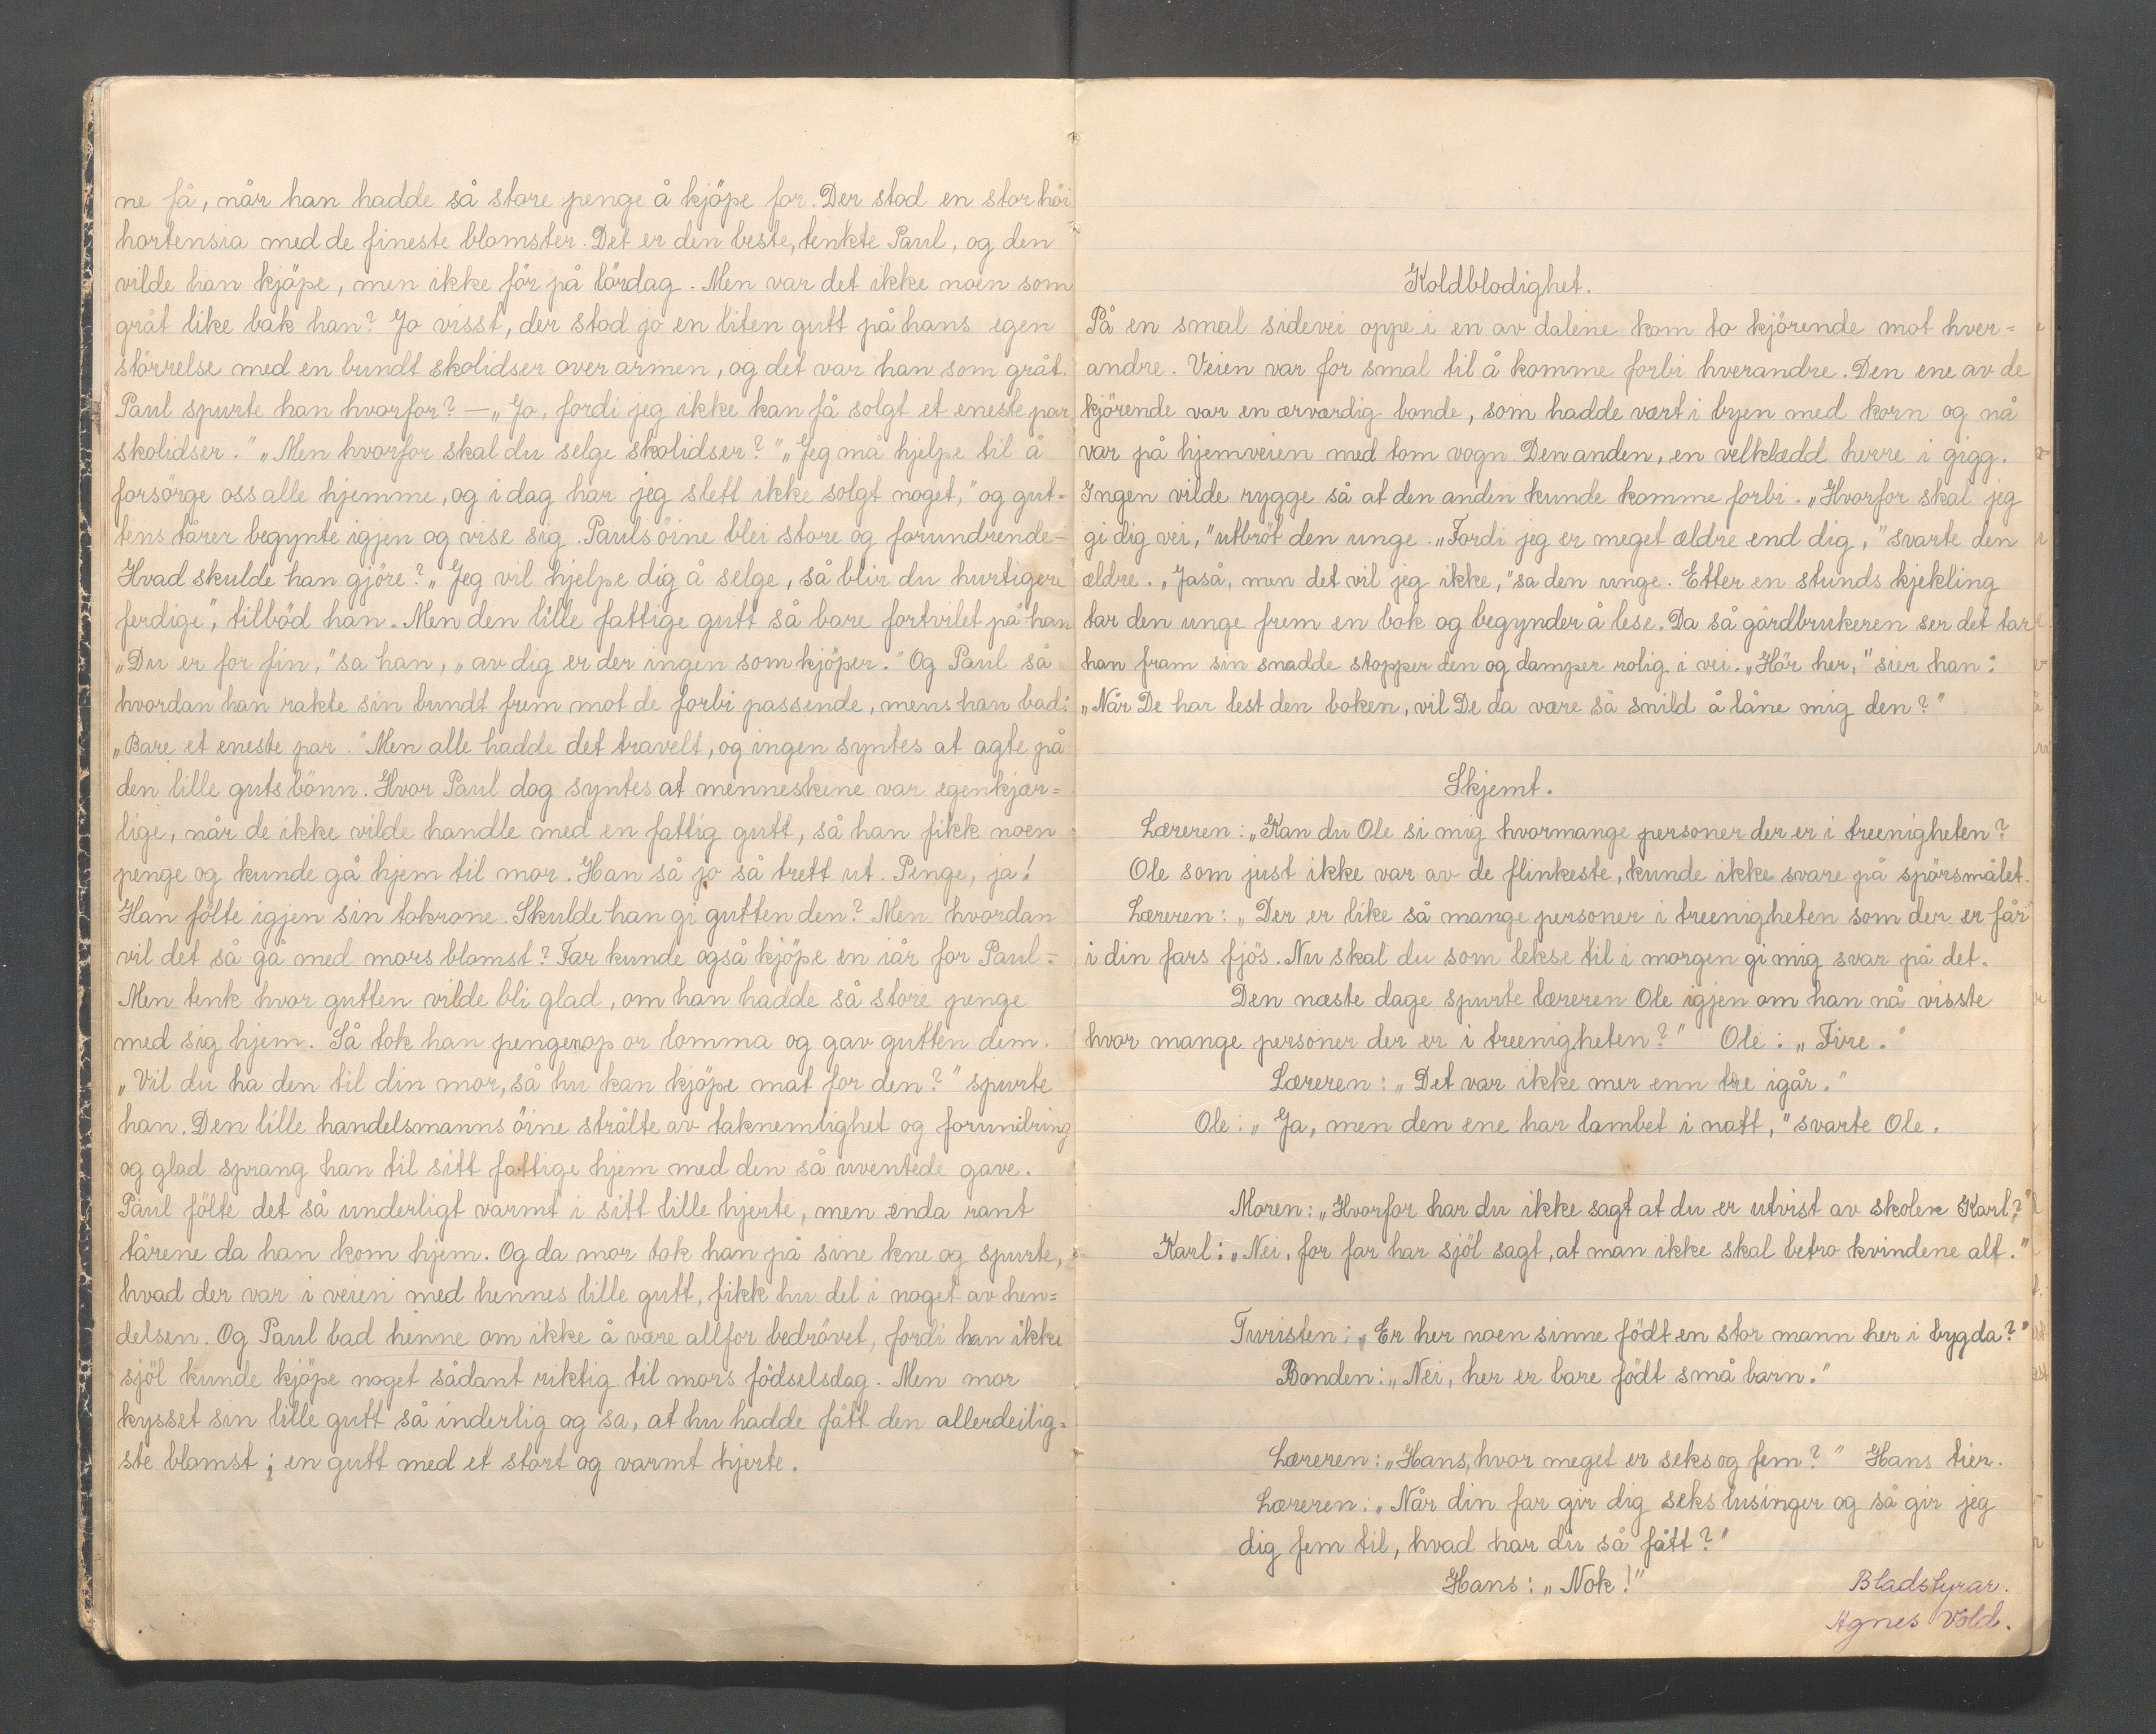 ne få, når han hadde så store penge å kjöpe for. Der stod en stor höi
hortensia med de fineste blomster. Det er den beste, tenkte Paul, og den
vilde han kjöpe, men ikke för på lördag. Men var det ikke noen som
gråt like bak han? Jo visst, der stod jo en liten gutt på hans egen
störrelse med en bundt skolidser over armen, og det var han som gråt.
Paul spurte han hvorfor? — „Jo, fordi jeg ikke kan få solgt et eneste par
skolidser." „Men hvorfor skal du selge skolidser?" „Jeg må hjelpe til å
forsörge oss alle hjemme, og i dag har jeg slett ikke solgt noget," og gut-
tens tårer begynte igjen og vise sig. Pauls öine blei store og forundrende —
Hvad skulde han gjöre? „Jeg vil hjelpe dig å selge, så blir du hurtigere
ferdige", tilböd han. Men den lille fattige gutt så bare fortvilet på han
„Du er for fin," sa han, „av dig er der ingen som kjöper." Og Paul så
hvordan han rakte sin bundt frem mot de forbi passende, mens han bad:
„Bare et eneste par." Men alle hadde det travelt, og ingen syntes at agte på
den lille guts bönn. Hvor Paul dog syntes at menneskene var egenkjær=
lige, når de ikke vilde handle med en fattig gutt, så han fikk noen
penge og kunde gå hjem til mor. Han så jo så trett ut. Penge, ja!
Han fölte igjen sin tokrone. Skulde han gi gutten den? Men hvordan
vil det så gå med mors blomst? Far kunde også kjöpe en iår for Paul –
Men tenk hvor gutten vilde bli glad, om han hadde så store penge
med sig hjem. Så tok han pengenop or lomma og gav gutten dem.
„Vil du ha den til din mor, så hu kan kjöpe mat for den?" spurte
han. Den lille handelsmanns öine strålte av taknemlighet og forundring
og glad sprang han til sitt fattige hjem med den så uventede gave.
Paul fölte det så underligt varmt i sitt lille hjerte, men enda rant
tårene da han kom hjem. Og da mor tok han på sine kne og spurte,
hvad der var i veien med hennes lille gutt, fikk hu del i noget av hen=
delsen. Og Paul bad henne om ikke å være allfor bedrövet, fordi han ikke
sjöl kunde kjöpe noget sådant riktig til mors födselsdag. Men mor
kysset sin lille gutt så inderlig og sa, at hu hadde fått den allerdeilig=
ste blomst; en gutt med et stort og varmt hjerte.
Koldblodighet.
På en smal sidevei oppe i en av dalene kom to kjörende mot hver=
andre. Veien var for smal til å komme forbi hverandre. Den ene av de
kjörende var en ærværdig bonde, som hadde vært i byen med korn og nå
var på hjemveien med tom vogn. Den anden, en velklædd herre i gigg.
Ingen vilde rygge så at den anden kunde komme forbi. „Hvorfor skal jeg
gi dig vei," utbröt den unge. „Fordi jeg er meget ældre end dig," svarte den
ældre. „Jaså, men det vil jeg ikke," sa den unge. Etter en stunds kjekling
tar den unge frem en bok og begynder å lese. Da så gårdbrukeren ser det tar
han fram sin snadde stopper den og damper rolig i vei. „Hör her," sier han:
„Når De har lest den boken, vil De da være så snild å låne mig den?"
Skjemt.
Læreren: „Kan du Ole si mig hvormange personer der er i treenigheten?
Ole som just ikke var av de flinkeste, kunde ikke svare på spörsmålet.
Læreren: „Der er like så mange personer i treenigheten som der er får
i din fars fjös. Nu skal du som lekse til i morgen gi mig svar på det.
Den næste dage spurte læreren Ole igjen om han nå visste
hvor mange personer der er i treenigheten?" Ole: „Fire."
Læreren: „Det var ikke mer enn tre igår."
Ole: „Ja, men den ene har lambet i natt," svarte Ole.
Moren: „Hvorfor har du ikke sagt at du er utvist av skolen Karl?"
Karl: „Nei, for far har sjöl sagt, at man ikke skal betro kvindene alt."
Turisten: „Er her noen sinne födt en stor mann her i bygda?"
Bonden: „Nei, her er bare födt små barn."
Læreren: „Hans, hvor meget er seks og fem?" Hans tier.
Læreren: „Når din far gir dig seks lusinger og så gir jeg
dig fem til, hvad har du så fått?"
Hans: „Nok!"
Bladstyrar.
Agnes Vold.